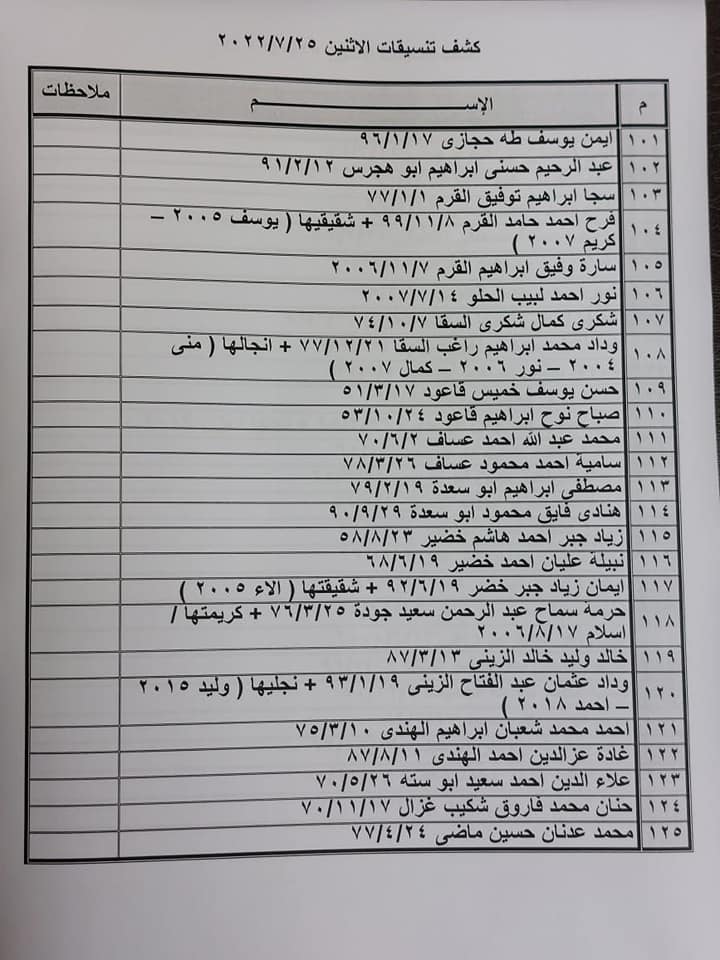 كشف تنسيقات الاثنين ٢٠٢٢/٧/٢٥
م الإســـــــــــــــــم ملاحظات
١٠١ ايمن يوسف طه حجازى ٩٦/١/١٧
١٠٢ عبد الرحيم حسنى ابراهيم ابو هجرس ٩١/٢/١٢
١٠٣ سجا ابراهيم توفيق القرم ٧٧/١/١
١٠٤ فرح احمد حامد القرم ٩٩/١١/٨ + شقيقيها ( يوسف ٢٠٠٥ –
كريم ٢٠٠٧ )
١٠٥ سارة وفيق ابراهيم القرم ٢٠٠٦/١١/٧
١٠٦ نور احمد لبيب الحلو ٢٠٠٧/٧/١٤
١٠٧ شكرى كمال شكرى السقا ٧٤/١٠/٧
١٠٨ وداد محمد ابراهيم راغب السقا ٧٧/١٢/٢١ + انجالها ( منى
٢٠٠٤ – نور ٢٠٠٦ – كمال ٢٠٠٧ )
١٠٩ حسن يوسف خميس قاعود ٥١/٣/١٧
١١٠ صباح نوح ابراهيم قاعود ٥٣/١٠/٢٤
١١١ محمد عبد الله احمد عساف ٧٠/٦/٢
١١٢ سامية احمد محمود عساف ٧٨/٣/٢٦
١١٣ مصطفى ابراهيم ابو سعدة ٧٩/٢/١٩
١١٤ هنادى فايق محمود ابو سعدة ٩٠/٩/٢٩
١١٥ زياد جبر احمد هاشم خضير ٥٨/٨/٢٣
١١٦ نبيلة عليان احمد خضير ٦٨/٦/١٩
١١٧ ايمان زياد جبر خضر ٩٢/٦/١٩ + شقيقتها ( الاء ٢٠٠٥ )
١١٨ حرمة سماح عبد الرحمن سعيد جودة ٧٦/٣/٢٥ + كريمتها /
اسلام ٢٠٠٦/٨/١٧
١١٩ خالد وليد خالد الزينى ٨٧/٣/١٣
١٢٠ وداد عثمان عبد الفتاح الزينى ٩٣/١/١٩ + نجليها ( وليد ٢٠١٥
– احمد ٢٠١٨ )
١٢١ احمد محمد شعبان ابراهيم الهندى ٧٥/٣/١٠
١٢٢ غادة عزالدين احمد الهندى ٨٧/٨/١١
١٢٣ علاء الدين احمد سعيد ابو سته ٧٠/٥/٢٦
١٢٤ حنان محمد فاروق شكيب غزال ٧٠/١١/١٧
١٢٥ محمد عدنان حسين ماضى ٧٧/٤/٢٤